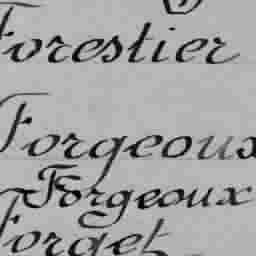 Forestier
Forgeoux
Forgeoux
Forget